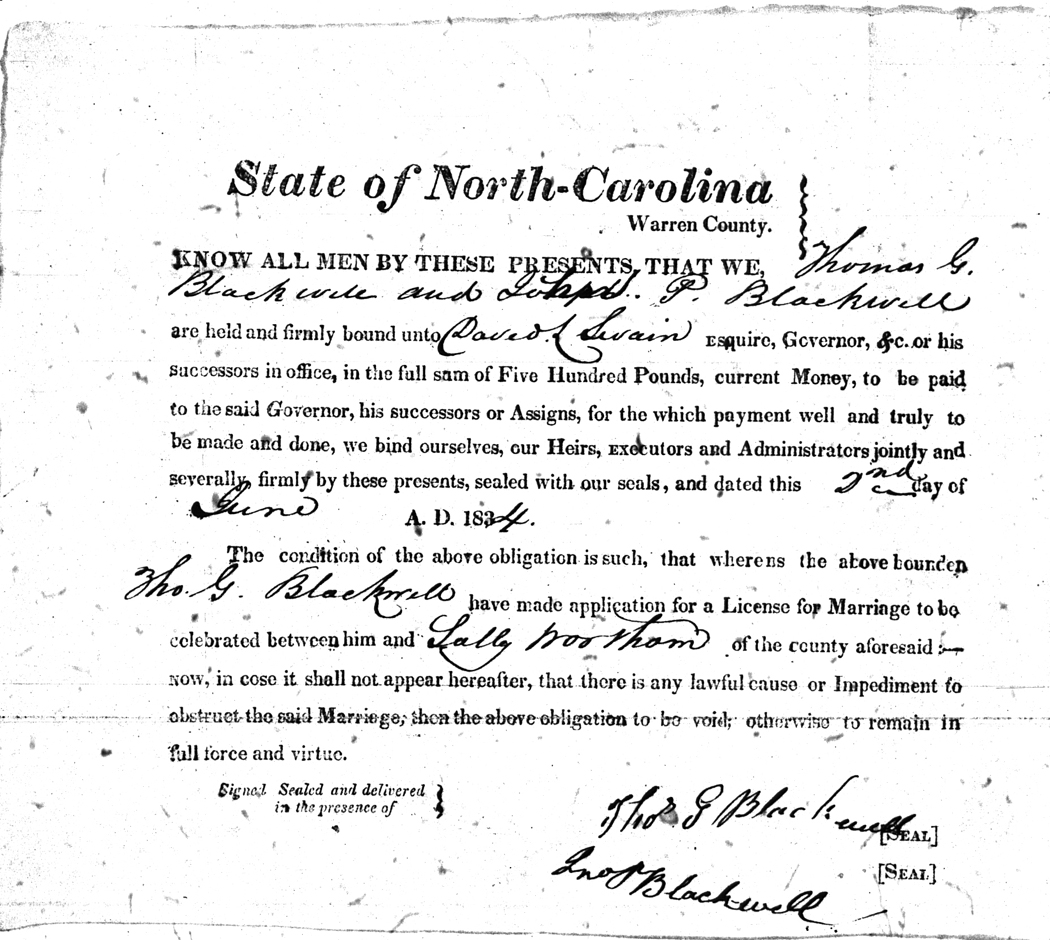 State of North-Carolina
Warren County.
KNOW ALL MEN BY THESE PRESENTS, THAT WE, Thomas G.
Blackwell and P. Blackwell
are held and firmly bound unto David L Swain ESquire, Governor, &c. or his
successors in office, in the full sum of Five Hundred Pounds, current Money, to be paid
to the said Governor, his successors or Assigns, for the which payment well and truly to
be made and done, we bind ourselves, our Heirs, Executors and Administrators jointly and
severally, firmly by these presents, sealed with our seals, and dated this 2nd day of
June A. D. 1834.
The condition of the above obligation is such, that whereas the above bounden
Tho. G. Blackwell have made application for a License for Marriage to be
celebrated between him and Sally Wortham of the county aforesaid :—
NOW, in case it shall not appear hereafter, that there is any lawful cause or Impediment to
obstruct the said Marriage, then the above obligation to be void; otherwise to remain in
full force and virtue.
Signed Sealed and delivered
in the presence of
Thos G Blackwell [SEAL]
Jno P Blackwell [SEAL]